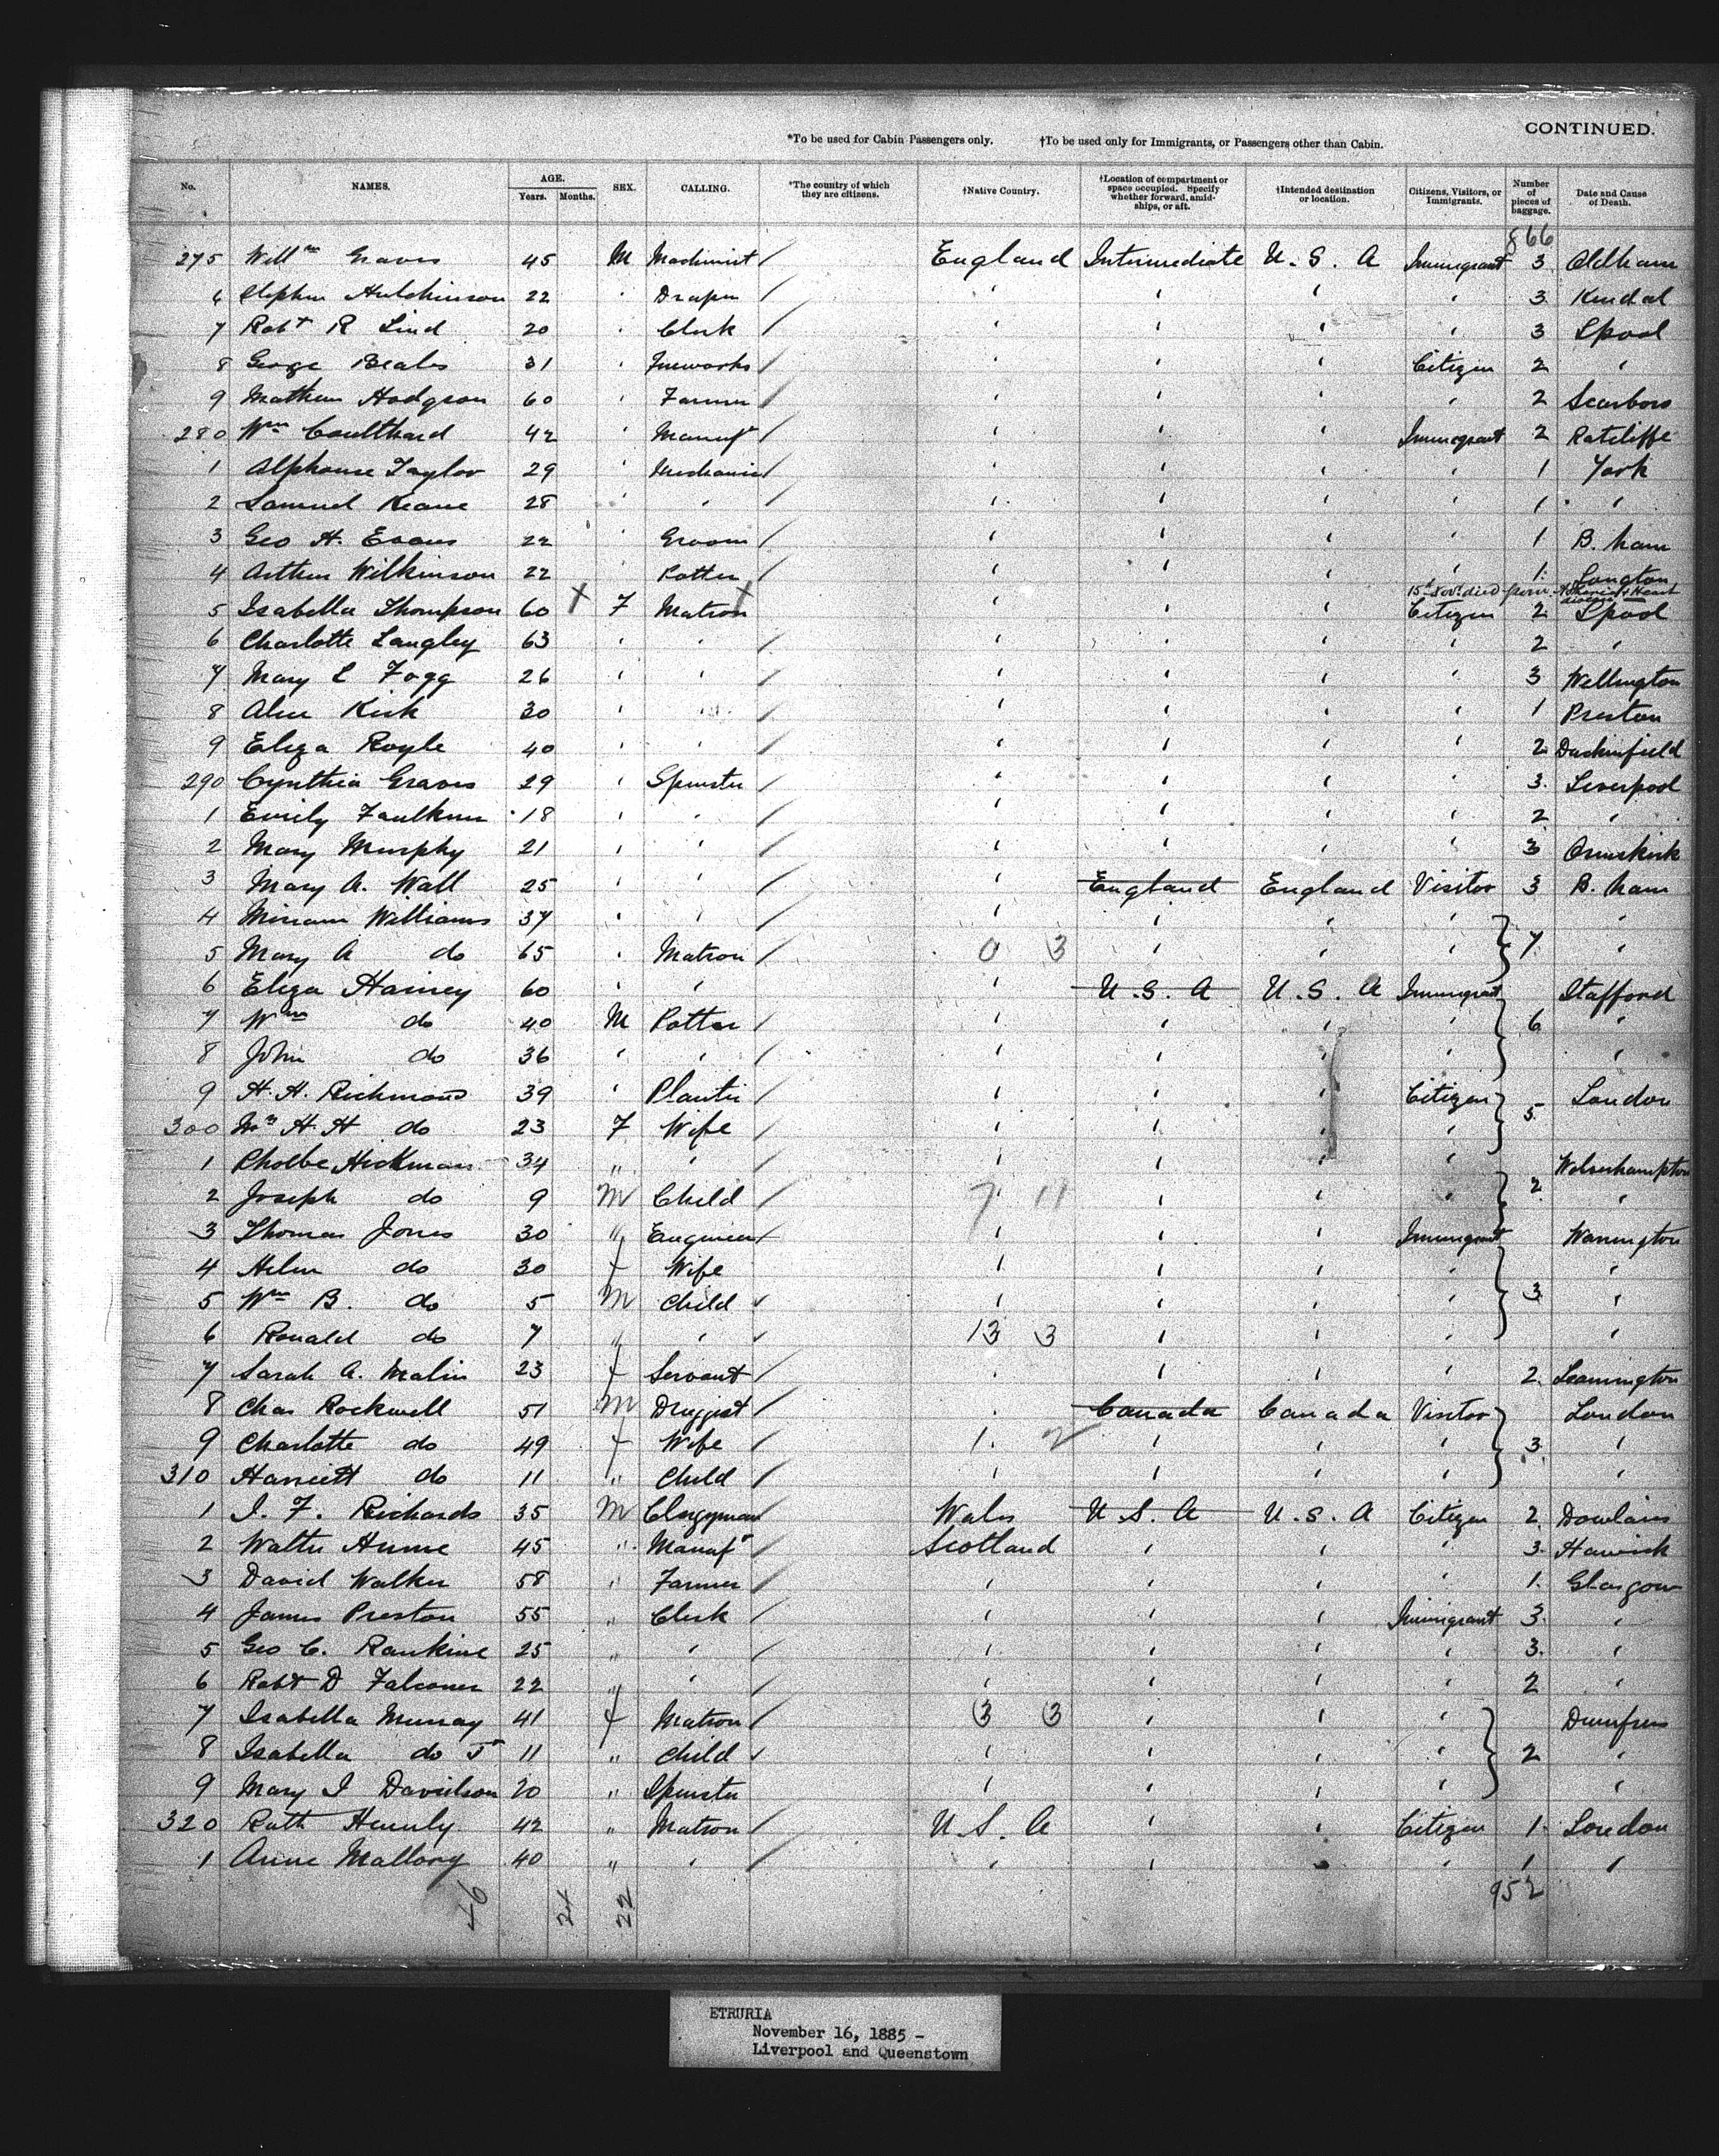 CONTINUED.
*To be used for Cabin Passengers only. †To be used only for Immigrants, or Passengers other than Cabin.
No. NAMES. AGE. Years. Months. SEX. CALLING. *The country of which they are citizens. †Native Country. †Location of compartment or space occupied. Specify whether forward, amidships, or aft. †Intended destination or location. Citizens, Visitors, or Immigrants. Number of pieces of baggage. Date and Cause of Death.
866
275 Willm Graves 45 M Machinist / England Intermediate U.S.A Immigrant 3 Oldham
6 Stephen Hutchinson 22 ' Draper / ' ' ' ' 3 Kendal
7 Robt R Lind 20 ' Clerk / ' ' ' ' 3 Lpool
8 George Beales 31 ' Fireworks / ' ' ' Citizen 2 '
9 Mathew Hodgson 60 ' Farmer / ' ' ' ' 2 Scarboro
280 Wm Coulthard 42 ' Manufr / ' ' ' Immigrant 2 Ratcliffe
1 Alphonse Taylor 29 ' Mechanic / ' ' ' ' 1 York
2 Samuel Keane 28 ' ' / ' ' ' ' 1 '
3 Geo H. Evans 22 ' Groom / ' ' ' ' 1 B.ham
4 Arthur Wilkinson 22 ' Potter / ' ' ' ' 1 Longton
15th Novr died from Heart disease
5 Isabella Thompson 60 X F Matron X ' ' ' Citizen 2 Lpool
6 Charlotte Langley 63 ' ' / ' ' ' ' 2 '
7 Mary L Fogg 26 ' ' / ' ' ' ' 3 Wellington
8 Alice Kirk 30 ' ' / ' ' ' ' 1 Preston
9 Eliza Royle 40 ' ' / ' ' ' ' 2 Duckinfield
290 Cynthia Graves 29 ' Spinster / ' ' ' ' 3 Liverpool
1 Emily Faulkner 18 ' ' / ' ' ' ' 2 '
2 Mary Murphy 21 ' ' / ' ' ' ' 3 Ormskirk
3 Mary A. Wall 25 ' ' / ' England England Visitor 3 B.ham
4 Miriam Williams 37 ' ' / ' ' ' ' '
5 Mary A do 65 ' Matron / 0 3 ' ' ' 7 '
6 Eliza Hainey 60 ' ' ' U.S.A U.S.A Immigrant Stafford
7 Wm do 40 M Potter / ' ' ' ' 6 '
8 John do 36 ' ' / ' ' ' ' '
9 H.H. Richmond 39 ' Planter / ' ' ' Citizen London
300 Mrs H.H do 23 F Wife / ' ' ' ' 5
1 Phoebe Hickman 34 " ' / ' ' ' ' Wolverhampton
2 Joseph do 9 M Child / 7 11 ' ' ' 2 '
3 Thomas Jones 30 " Engineer / ' ' ' Immigrant Warrington
4 Helen do 30 f Wife ' ' ' ' '
5 Wm B. do 5 M Child ' ' ' ' 3 '
6 Ronald do 7 " ' 13 3 ' ' ' '
7 Sarah A. Malin 23 f Servant / ' ' ' ' 2 Leamington
8 Chas Rockwell 51 M Druggist / ' Canada Canada Visitor London
9 Charlotte do 49 f Wife / 1 2 ' ' ' 3 '
310 Harriett do 11 " Child / ' ' ' '
1 I. F. Richards 35 M Clergyman / Wales U.S.A U.S.A Citizen 2 Dowlais
2 Walter Hume 45 " Manufr / Scotland ' ' ' 3 Hawick
3 David Walker 58 " Farmer / ' ' ' ' 1 Glasgow
4 James Preston 55 " Clerk / ' ' ' Immigrant 3 '
5 Geo C. Rankine 25 " ' / ' ' ' ' 3 '
6 Robt D Falconer 22 " ' / ' ' ' ' 2 '
7 Isabella Murray 41 f Matron / 3 3 ' ' ' Dumfries
8 Isabella do Jr 11 " Child ' ' ' ' 2 '
9 Mary I Davidson 20 " Spinster ' ' ' ' '
320 Ruth Hennly 42 " Matron / U.S.A ' ' Citizen 1 London
1 Anne Mallory 40 " ' / ' ' ' ' 1 '
46 24 22 952
ETRURIA
November 16, 1885 -
Liverpool and Queenstown